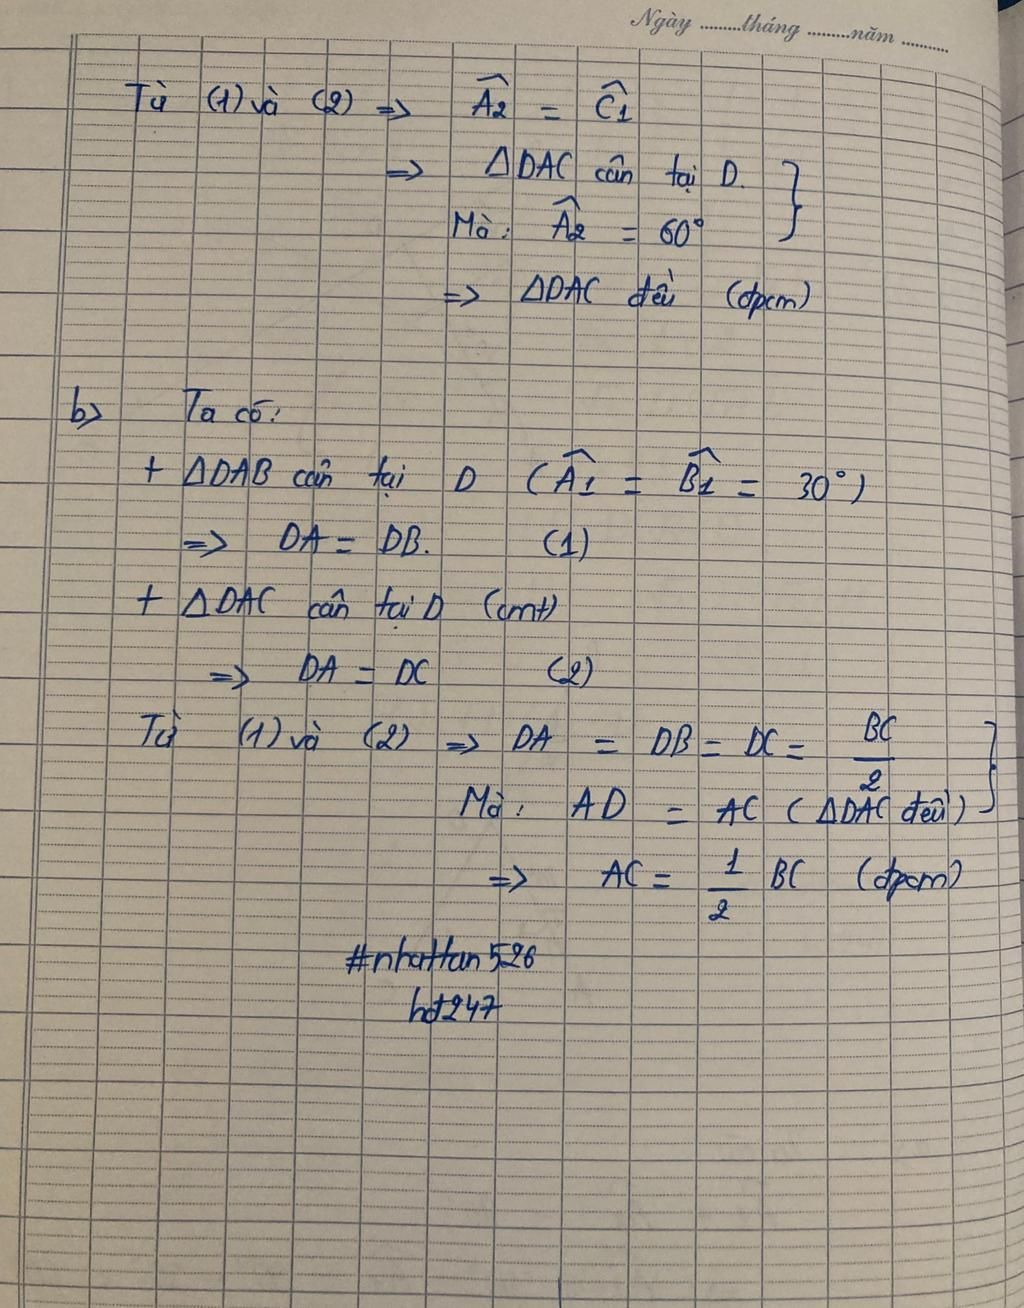 Ngày .........tháng .........năm ..........
Từ (1) và (2) => Â2 = Ĉ1
=> ΔDAC cân tại D. }
Mà: Â2 = 60°
=> ΔDAC đều (đpcm)
b) Ta có:
+ ΔDAB cân tại D (Â1 = B̂1 = 30°)
=> DA = DB. (1)
+ ΔDAC cân tại D (cmt)
=> DA = DC (2)
Từ (1) và (2) => DA = DB = DC = BC/2 }
Mà: AD = AC (ΔDAC đều)
=> AC = 1/2 BC (đpcm)
#nhattan526
hd247